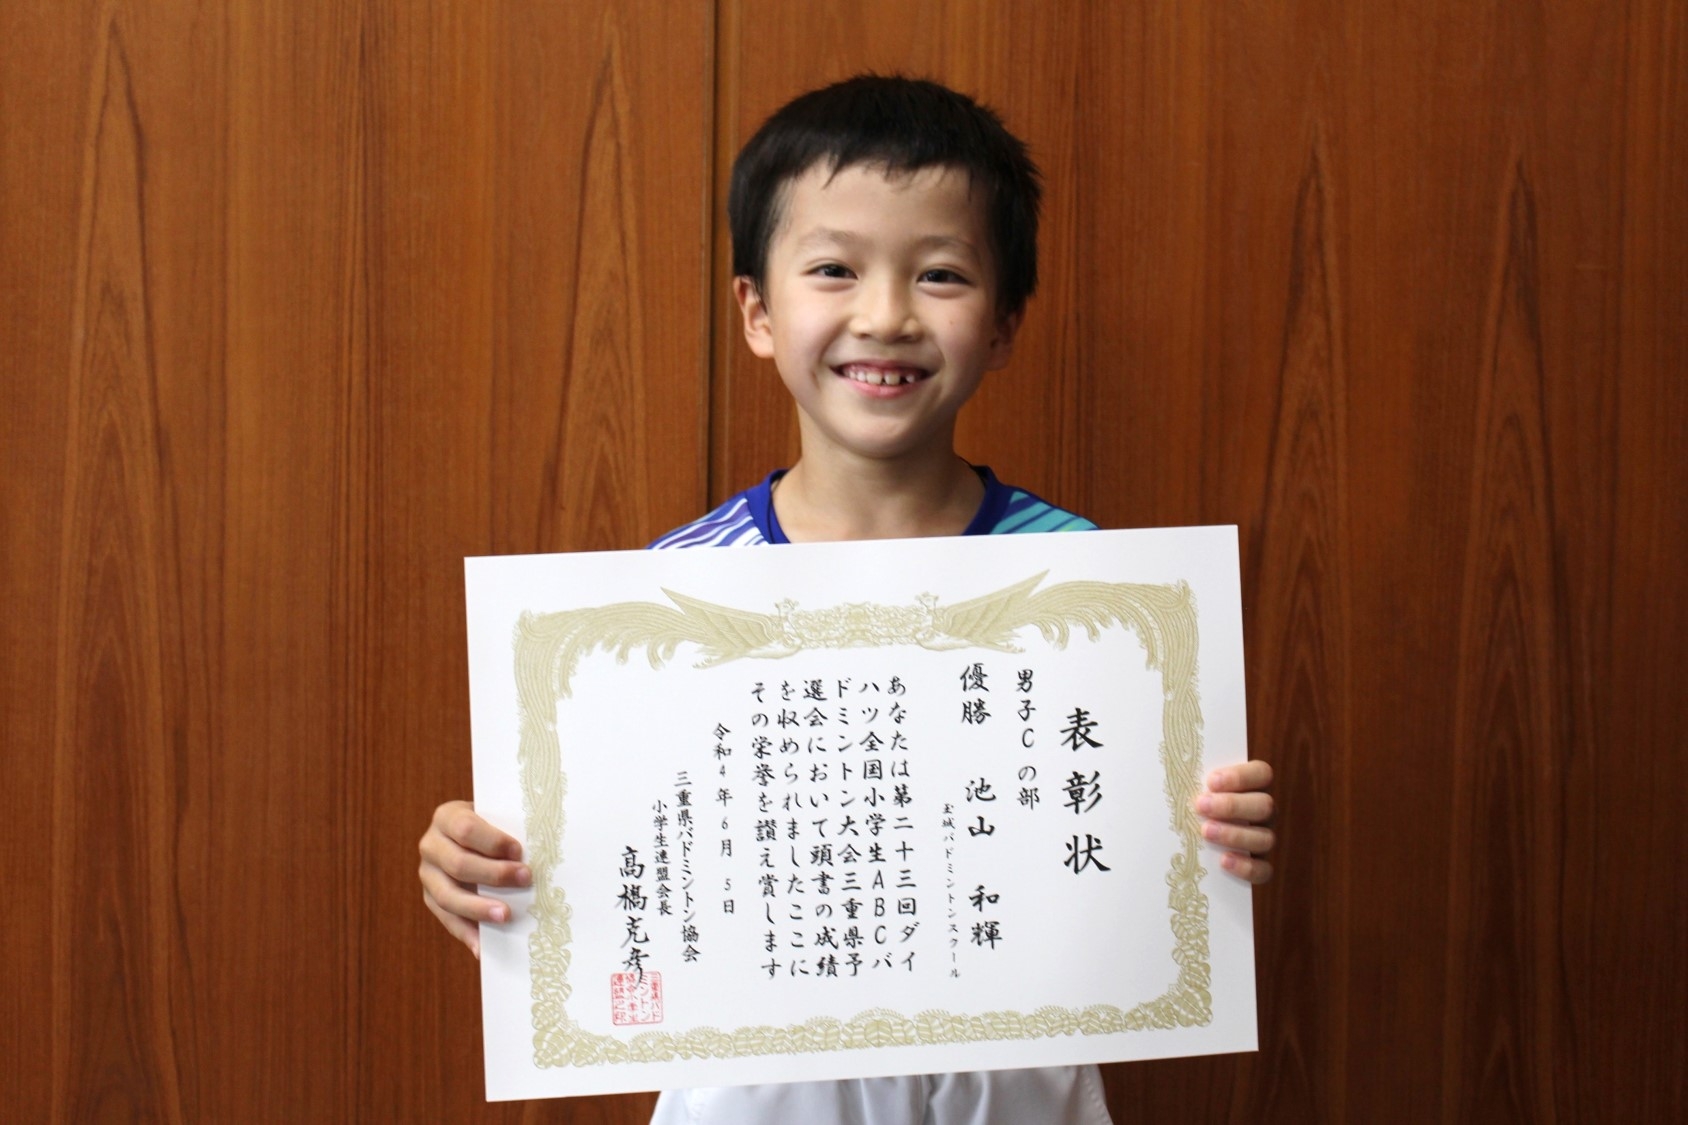 表彰状
男子Cの部
優勝 池山 和輝
玉城バドミントンスクール
あなたは第二十三回ダイ
ハツ全国小学生ABCバ
ドミントン大会三重県予
選会において頭書の成績
を収められましたここに
その栄誉を讃え賞します
令和4年6月5日
三重県バドミントン協会
小学生連盟会長
髙橋克彦